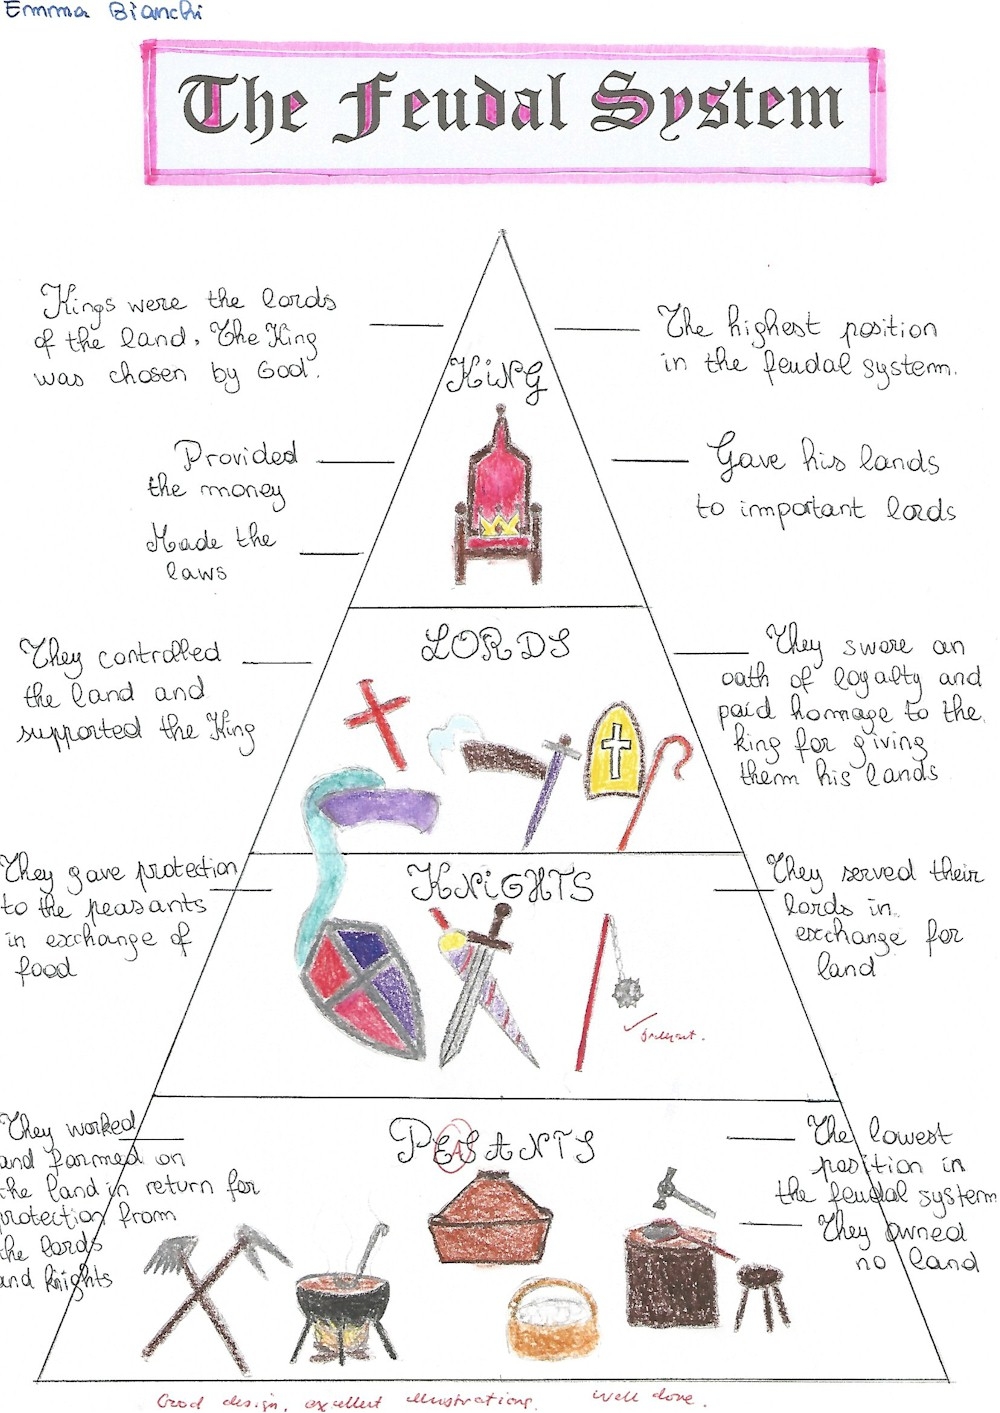 Emma Bianchi
The Feudal System
Kings were the lords
of the land. The King
was chosen by God.
The highest position
in the feudal system.
KiNG
Provided
the money
Made the
laws
Gave his lands
to important lords
LORDS
They controlled
the land and
supported the King
They swore an
oath of loyalty and
paid homage to the
king for giving
them his lands
KNiGHTS
They gave protection
to the peasants
in exchange of
food
They served their
lords in
exchange for
land
PESANTS
A
They worked
and farmed on
the land in return for
protection from
the lords
and knights
The lowest
position in
the feudal system
They owned
no land
Good design, excellent illustrations. Well done.